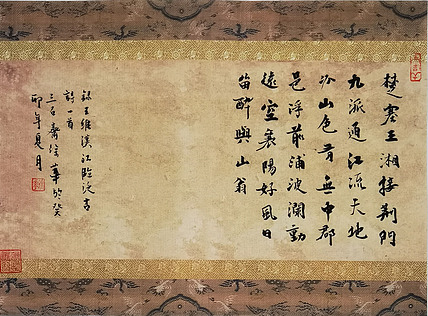 楚塞三湘接荊門
九派通江流天地
外山色有無中郡
邑浮前浦波瀾動
遠空襄陽好風日
留醉與山翁
錄王維漢江臨泛古
詩一首
三石齋 華於癸
卯年夏月